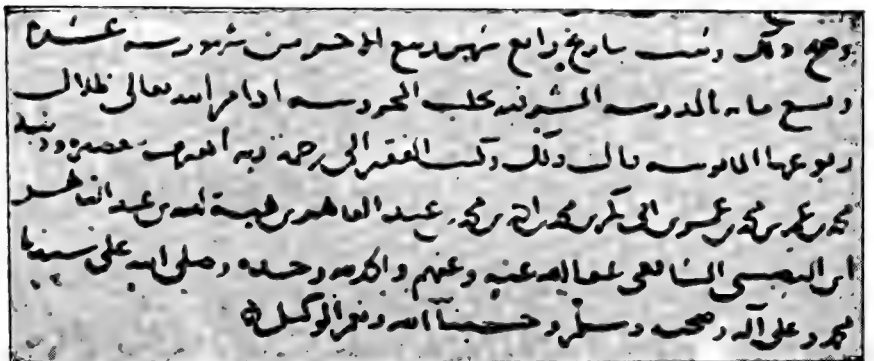 وصح ذلك وثبت بتاريخ رابع شهر ربيع الاخر من شهور سنه عشرة
وتسع مايه بالمدرسه الشرفيه بحلب المحروسه ادام الله تعالى ظلال
ربوعها المانوسه قال ذلك وكتب الفقير الى رحمة ربه وذنبه
محمد بن عمر بن محمد بن عمر بن ابي بكر بن محمد بن محمد بن عبد القاهر بن هبة الله بن عبد القاهر
ابن النصيبي الشافعي عفا الله عنه وعنهم والحمد لله وحده وصلى الله على سيدنا
محمد وعلى آله وصحبه وسلم وحسبنا الله ونعم الوكيل